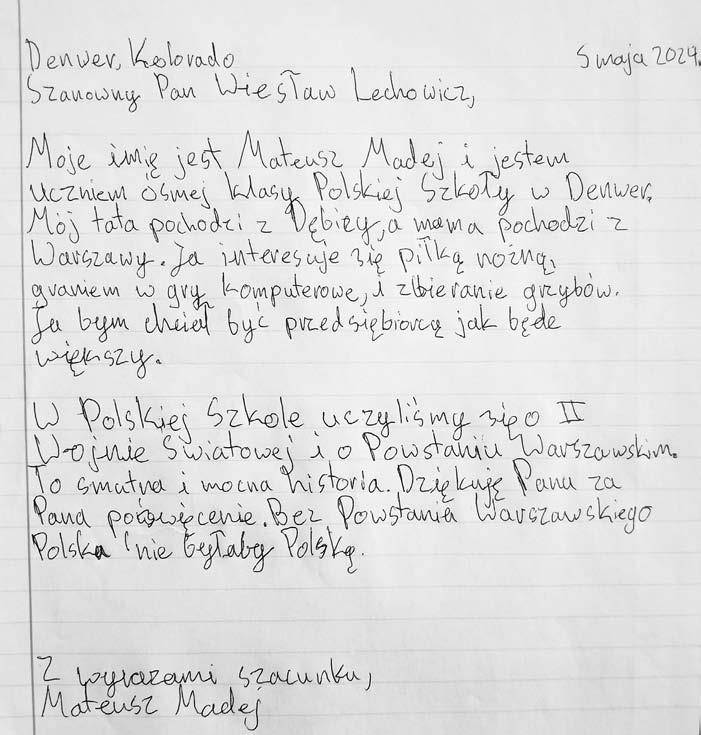 Denwer, Kolorado
5 maja 2024.
Szanowny Pan Wiesław Lechowicz,
Moje imię jest Mateusz Madej i jestem
uczniem ósmej klasy Polskiej Szkoły w Denwer.
Mój tata pochodzi z Dębicy, a mama pochodzi z
Warszawy. Ja interesuje się piłką nożną,
graniem w gry komputerowe, i zbieranie grzybów.
Ja bym chciał być przedsiębiorcą jak będe
większy.
W Polskiej Szkole uczyliśmy się o II
Wojnie Światowej i o Powstaniu Warszawskim.
To smutna i mocna historia. Dziękuję Panu za
Pana poświęcenie. Bez Powstania Warszawskiego
Polska nie byłaby Polską.
Z wyrazami szacunku,
Mateusz Madej